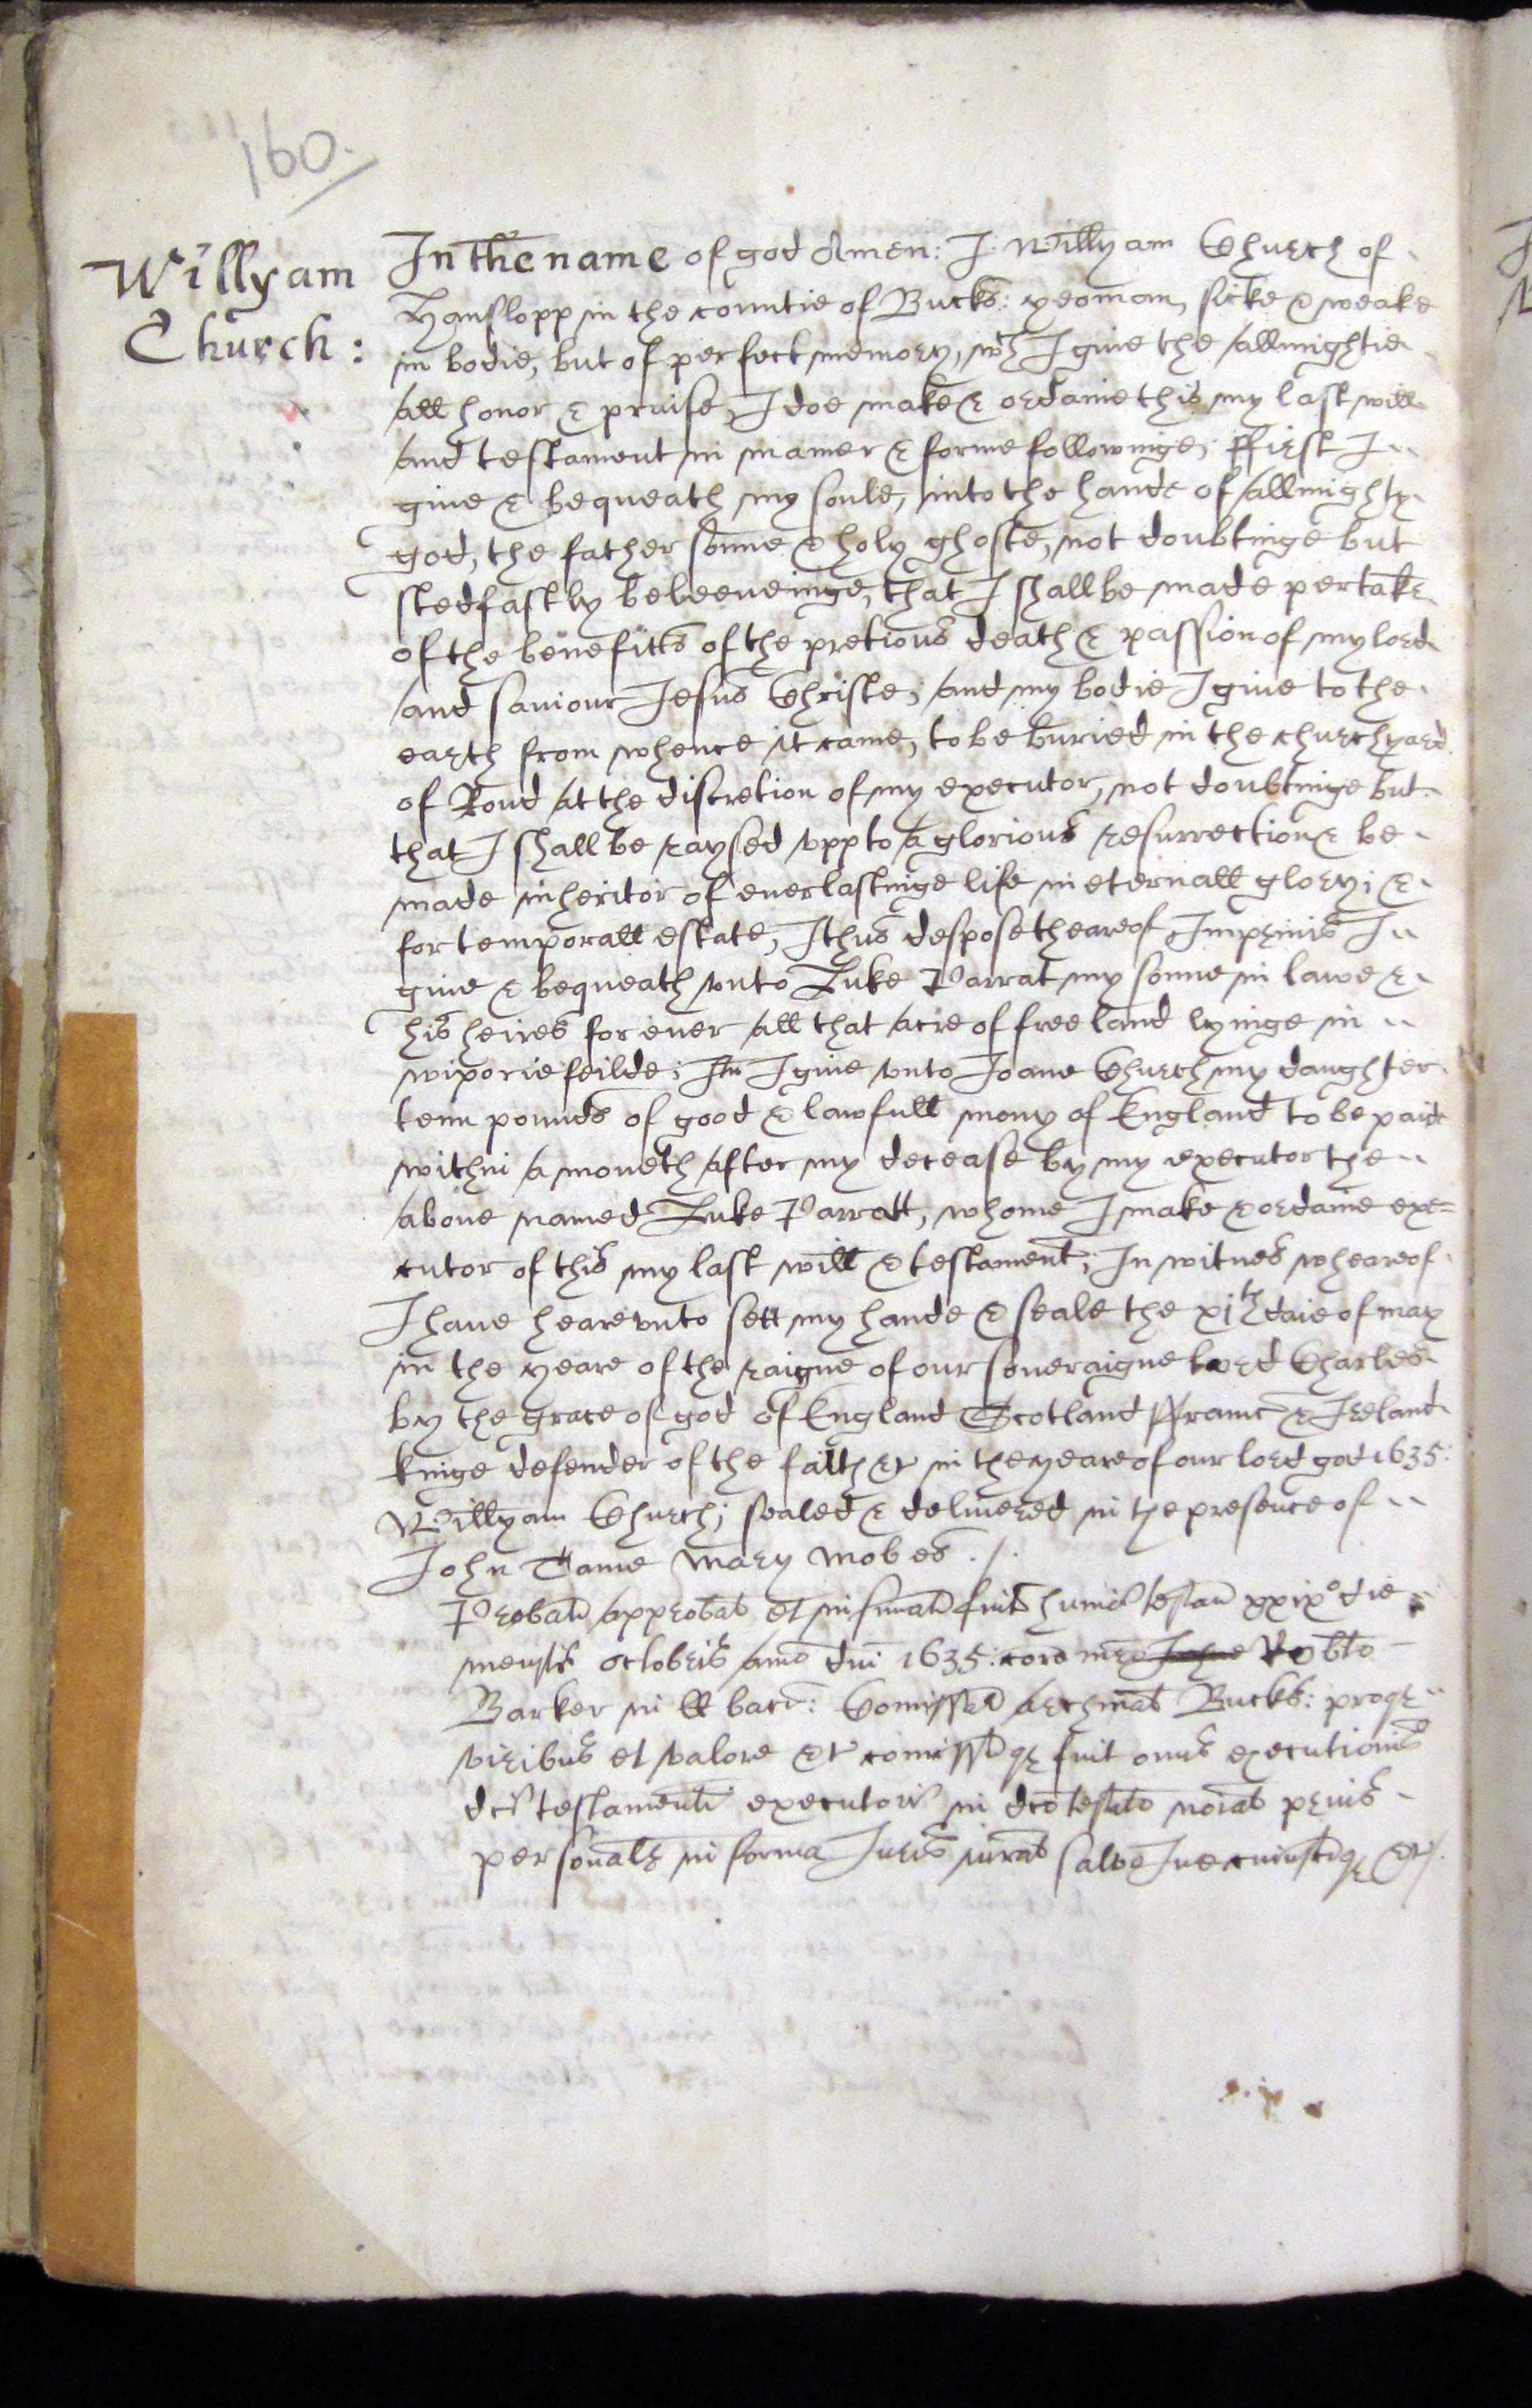 160.
Willyam
Church:
In the name of god Amen: I Willyam Church of
Hanslopp in the countie of Bucks: yeoman, sicke & weake
in bodie, but of perfect memory, wch I give the allmightie
all honor & praise, I doe make & ordaine this my last will
and testament in maner & forme followinge; ffirst I
give & bequeath my soule, into the hande of allmighty
god, the father sonne & holy ghoste, not doubtinge but
stedfastly beleeveinge, that I shall be made pertaker
of the benefitts of the pretious death & passion of my lord
and saviour Jesus Christe; and my bodie I give to the
earth from whence it came, to be buried in the churchyard
of Roud at the discretion of my executor, not doubtinge but
that I shall be raysed upp to a glorious resurrection & be
made inheritor of everlastinge life in eternall glory; &
for temporall estate, I thus despose theareof Imprimis I
give & bequeath unto Luke Parrat my sonne in lawe &
his heires for ever all that acre of free land lyinge in
wiporie feilde; Itm I give unto Joane Church my daughter
tenn pounds of good & lawfull mony of England to be paid
within a moneth after my decease by my executor the
above named Luke Parratt, whome I make & ordaine exe=
cutor of this my last will & testament; In witnes wheareof
I have heareunto sett my hande & seale the xjth daie of may
in the yeare of the raigne of our soveraigne lord Charles
by the grace of god of England Scotland ffraunc & Ireland
kinge defender of the faith &c in the yeare of our lord god 1635:
Willyam Church; sealed & delivered in the presence of
John Tame Mary Mobes ./.
Probatu approbat et insinuatu fuit humoi testam xxixo die
mensis octobris anno dni 1635: coram mro Robto
Barker in ll bacc: Comissar archinat Bucks: proqr
viribus et valore &c comissuqr fuit onus executionis
dci testamenti executori in dco testato noiat prius
personalr in forma Juris iurat salvo Jure cuiuscuqr &c/.